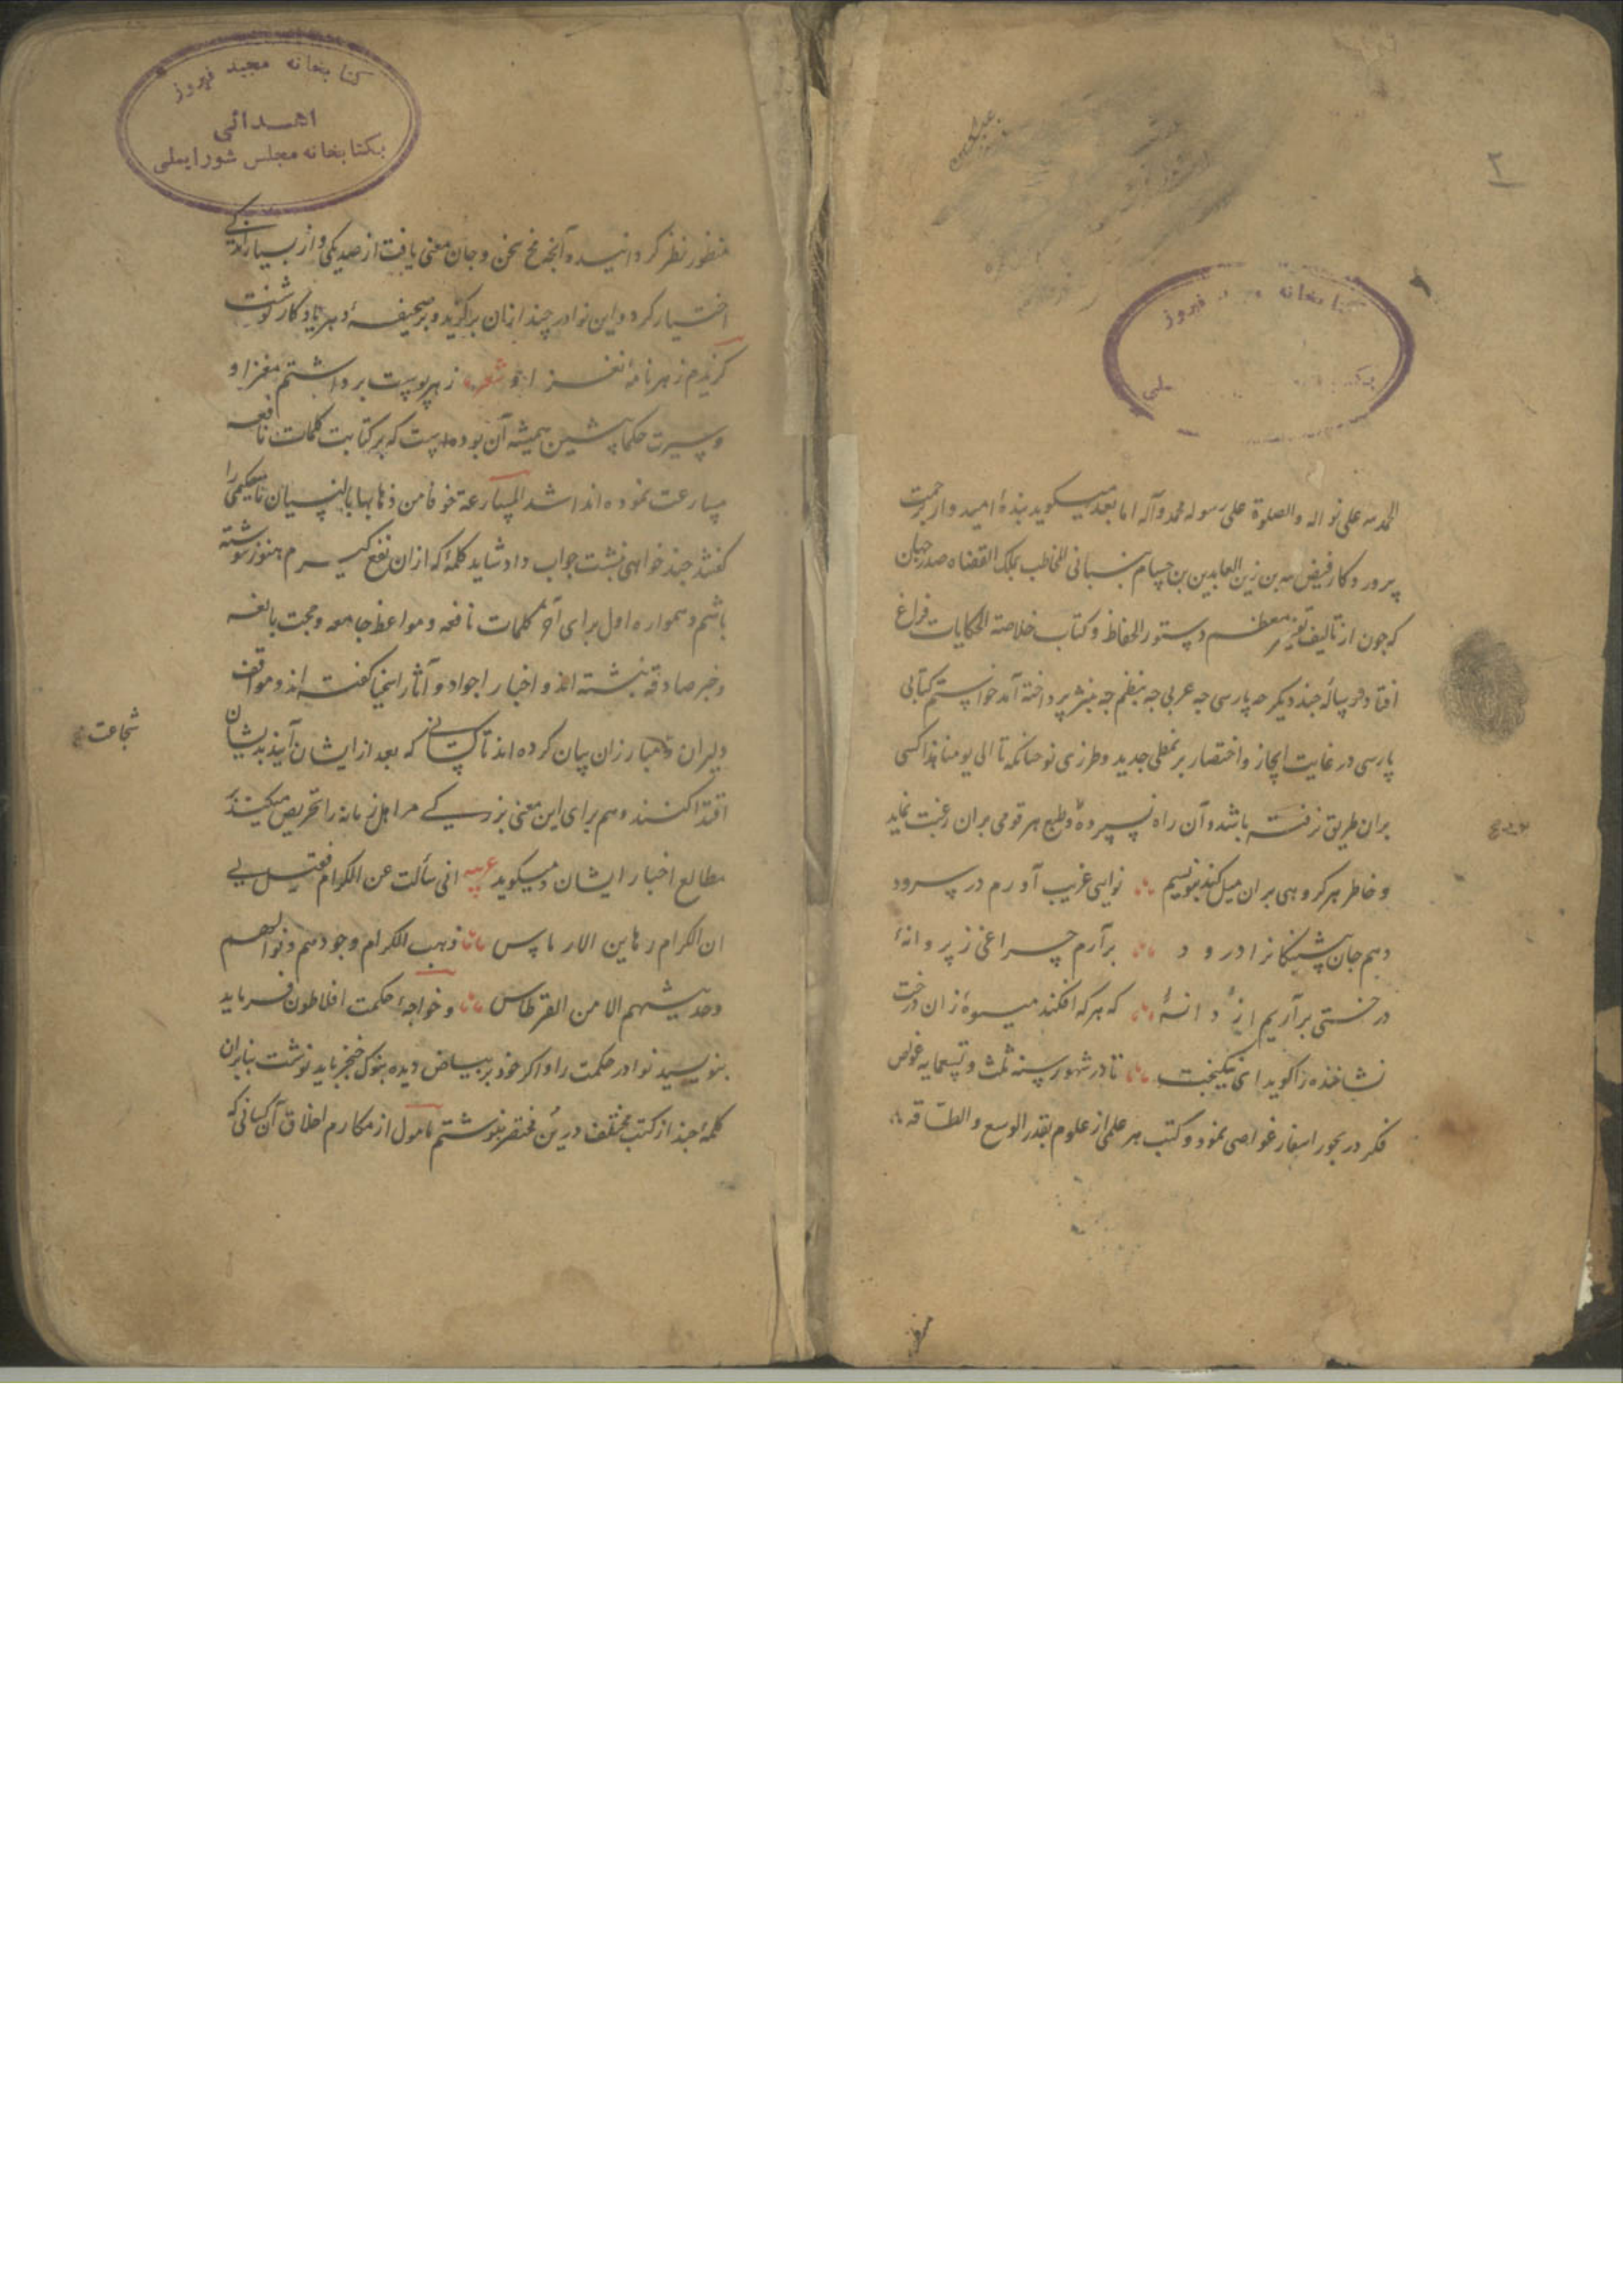 ۲
الحمد لله علی نواله والصلوة علی رسوله محمد وآله اما بعد میکوید بندهٔ امیدوار برحمت
پروردکار فیض الله بن زین العابدین بن حسام بنبانی المخاطب بملک القضاه صدر جهان
که جون از تالیف معظم دستور الحفاظ و کتاب خلاصة الحکایات فراغ
افتاد و رسالهٔ جند دیکر جه پارسی جه عربی جه بنظم جه بنثر پرداخته آمد خواستم کتابی
پارسی در غایت ایجاز و اختصار بر نمطی جدید و طرزی نو جنانکه تا الی یومنا هذا کسی
بران طریق نرفته باشد و آن راه نسپرده و طبع هر قومی بران رغبت نماید
و خاطر هر کروهی بران میل کند بنویسم نوایی غریب آورم در سرود
دهم جان پیشینکانرا درود برآرم چراغی ز پروانهٔ
درختی برآریم از دانهٔ که هر که افکند میوهٔ زان درخت
نشاننده را کوید ای نیکبخت تا در شهور سنه ثلث و تسعمایه غواص
فکر در بحور اسفار غواصی نمود و کتب هر علمی از علوم بقدر الوسع والطاقه
کتابخانه مجید فیروز
اهدائی
بکتابخانه مجلس شورایملی
منظور نظر کردانیده آنجه مخ سخن و جان معنی یافت از صد یکی و از بسیار اندکی
اختیار کرد و این نوادر چند ازان برکزید و بر صحیفهٔ دهر یادکار نوشت
کزیدم ز هر نامهٔ نغز او شعر ز هر پوست برداشتم مغز او
و سیرت حکما پیشین همیشه آن بوده است که بر کتابت کلمات نافعه
مسارعت نموده اند اشد المسارعة خوفا من ذهابها بالنسیان تا حکیمی را
کفتند جند خواهی نبشت جواب داد شاید کلمهٔ که ازان نفع کیرم هنوز ننوشته
باشم و همواره اول برای آخر کلمات نافعه و مواعظ جامعه و حجت بالغه
و خبر صادقه نبشته اند و اخبار اجواد و آثار اسخیا کفته اند و مواقف
دلیران و مبارزان بیان کرده اند تا کسانی که بعد از ایشان آیند بدیشان
شجاعت
اقتدا کنند و هم برای این معنی بزرکی مر اهل زمانه را تحریص میکند بر
مطالع اخبار ایشان و میکوید عربیه انی سألت عن الکرام فقیل لی
ان الکرام رهاین الارماس ذهب الکرام وجودهم ونوالهم
وحدیثهم الا من القرطاس و خواجهٔ حکمت افلاطون فرماید
بنویسید نوادر حکمت را و اکر خود بر بیاض دیده بنوک خنجر باید نوشت بنابران
کلمهٔ جند از کتب مختلف درین مختصر بنوشتم مامول از مکارم اخلاق آن کسانی که